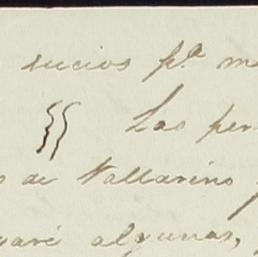 sucios p.ª m
Las per
s de Vallarino
varé algunas,